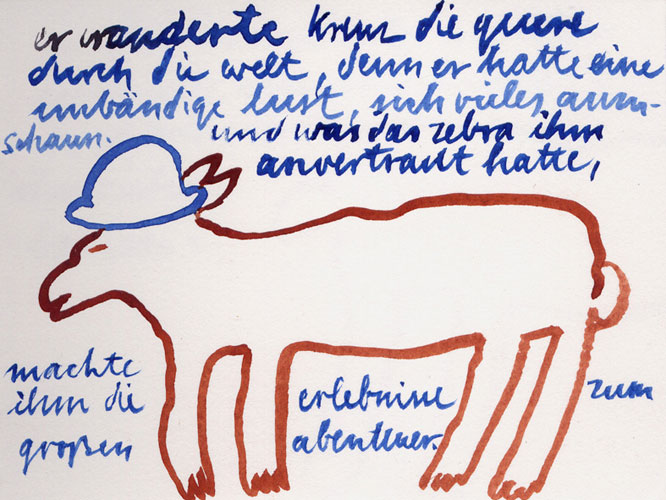 er wanderte kreuz die quere
durch die welt, denn er hatte eine
unbändige lust, sich vieles anzu-
schaun. und was das zebra ihm
anvertraut hatte,
machte
ihm die erlebnisse zum
großen abenteuer.